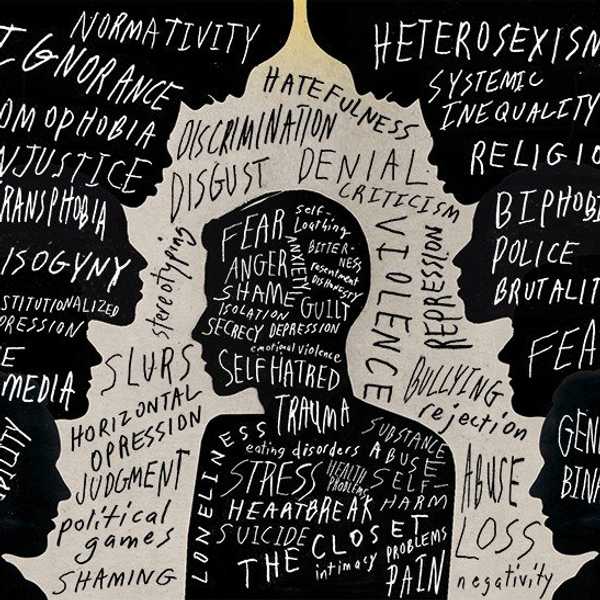 NORMATIVITY
IGNORANCE
OMOPHOBIA
NJUSTICE
RANSPHOBIA
ISOGYNY
STITUTIONALIZED
PRESSION
E
MEDIA
HATEFULNESS
DISCRIMINATION
DISGUST
DENIAL
CRITICISM
stereotyping
VIOLENCE
REPRESSION
SLURS
HORIZONTAL
OPRESSION
JUDGMENT
political
games
SHAMING
FEAR
self-
Loathing
ANXIETY
BITTER-
NESS
ANGER
resentment
DISHONESTY
SHAME
GUILT
ISOLATION
SECRECY DEPRESSION
emotional violence
SELF HATRED
TRAUMA
LONELINESS
eating disorders
SUBSTANCE
ABUSE
STRESS
HEALTH
PROBLEMS
SELF-
HARM
HEARTBREAK
SUICIDE
THE CLOSET
intimacy
PROBLEMS
PAIN
BULLYING
rejection
ABUSE
LOSS
negativity
HETEROSEXISM
SYSTEMIC
INEQUALITY
RELIGIO
BIPHOBI
POLICE
BRUTALIT
FEA
GEN
BINA